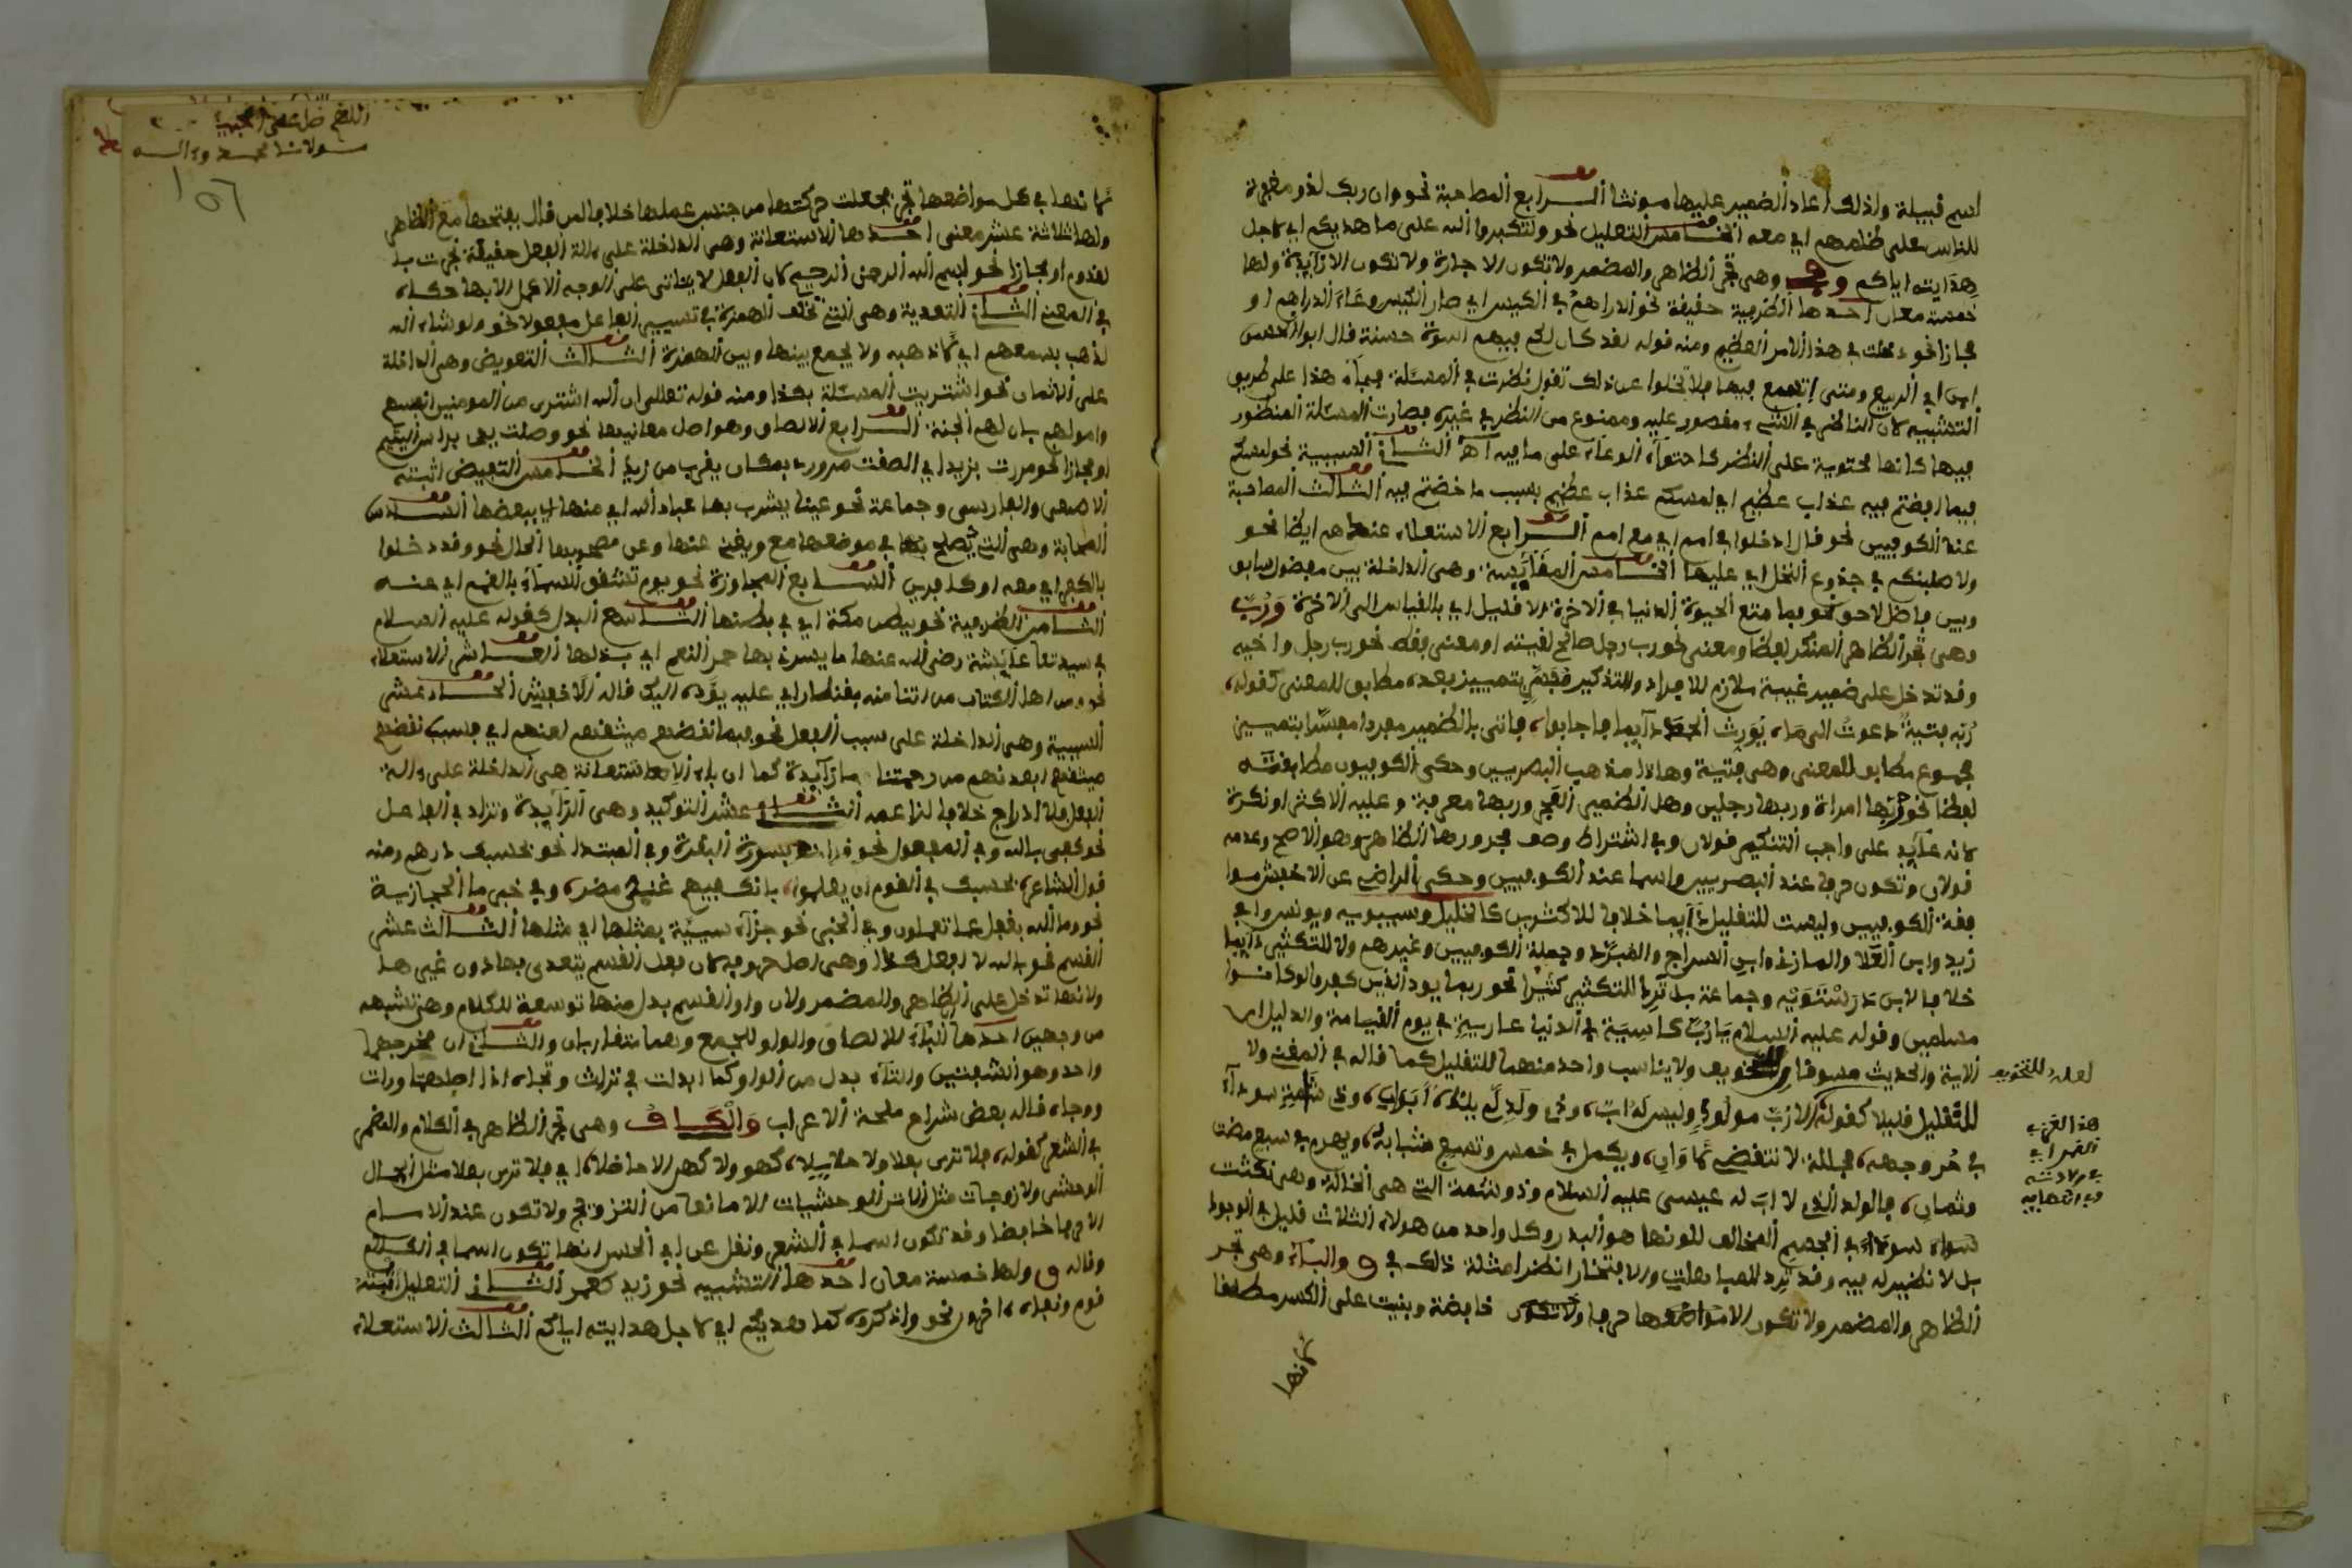 اسم قبيلة ولذلك أعاد الضمير عليها مونثا الرابع المصاحبة نحو وان ربك لذو مغفرة
للناس على ظلمهم اي معه الخامس التعليل نحو ولتكبروا الله على ما هديكم اي لاجل
هدايته اياكم وفي وهي تجر الظاهر والمضمر ولا تكون الا جارة ولا تكون الا زايدة ولها
خمسة معان احدها الظرفية حقيقة نحو الدراهم في الكيس اي صار الكيس وعاء الدراهم او
مجازا نحو دخلت في هذا الامر العظيم ومنه قوله لقد كان لكم فيهم اسوة حسنة قال ابو الحسن
ابن ابي الربيع ومتى اتسع فيها فلا تخلوا عن ذلك تقول نظرت في المسئلة فجاء هذا على طريق
التشبيه لان الناظر في الشيء مقصور عليه وممنوع من النظر في غيره فصارت المسئلة المنظور
فيها كانها محتوية على النظر كاحتواء الوعاء على ما فيه اهـ الثاني السببية نحو لمسكم
فيما افضتم فيه عذاب عظيم اي لمسكم عذاب عظيم بسبب ما خضتم فيه الثالث المصاحبة
عند الكوفيين نحو قال ادخلوا في امم اي مع امم الرابع الاستعلاء عندهم ايضا نحو
ولاصلبنكم في جذوع النخل اي عليها الخامس المقايسة وهي الداخلة بين مفضول سابق
وبين فاضل لاحق نحو فما متع الحيوة الدنيا في الاخرة الا قليل اي بالقياس الى الاخرة ورب
وهي تجر الظاهر المنكر لفظا ومعنى نحو رب رجل صالح لقيته او معنى فقط نحو رب رجل واخيه
وقد تدخل على ضمير غيبة ملازم للافراد والتذكير مفسر بتمييز بعده مطابق للمعنى كقوله،
ربه فتية دعوت الى ما، يورث الحمد دايما فاجابوا، فاتى بالضمير مفردا مفسرا بتمييز
مجموع مطابق للمعنى وهي فتية وهذا مذهب البصريين وحكى الكوفيون مطابقته
لفظا نحو ربها امراة وربهما رجلين وهل الضمير المجرور بها معرفة وعليه الاكثر او نكرة
لانه عايد على واجب التنكير قولان وفي اشتراط وصف مجرورها الظاهر وهو الاصح وعدمه
قولان وتكون حرفا عند البصريين واسما عند الكوفيين وحكى الراضي عن الاخفش موا
فقة الكوفيين وليست للتقليل دايما خلافا للاكثرين كالخليل وسيبويه ويونس وابي
زيد وابن العلا والمازني وابن السراج والمبرد وجملة الكوفيين وغيرهم ولا للتكثير دايما
خلافا لابن درستويه وجماعة بل ترد للتكثير كثيرا نحو ربما يود الذين كفروا لو كانوا
مسلمين وقوله عليه السلام يا رب كاسية في الدنيا عارية في يوم القيامة والدليل ان
الاية والحديث مسوقان للتخويف ولا يناسب واحد منهما للتقليل كما قاله في المغني ولا
للتقليل قليلا كقوله، الا رب مولود وليس له اب، وذي ولد لم يلده ابوان، وذي شامة سوداء
في حر وجهه، مجللة لا تنقضي لاوان، ويكمل في خمس وتسع شبابه، ويهرم في سبع مضت
وثمان، فالولد الذي لا اب له عيسى عليه السلام وذو شامة التي هي الخالة وهي نكتت
سواء سوداء في الجسم المخالف للونها هو البدر وكل واحد من هولاء الثلاث قليل في الوجود
بل لا نظير له فيه وقد ترد للمباهات والافتخار انظر امثلة ذلك في ق والباء وهي تجر
الظاهر والمضمر ولا تكون الا حرفا ولا تكون خافضة وبنيت على الكسر مطلقا
لانها
لعله للتخويف
هذا الغريب
القمر اي
في ولادته
وفي انتهايه
اللهم صل على
سولانا محمد وءاله
156
لانها في كل مواضعها تجر فجعلت حركتها من جنس عملها خلافا لمن قال بفتحها مع الظاهر
ولها ثلاثة عشر معنى احدها الاستعانة وهي الداخلة على ءالة الفعل حقيقة نجرت بال
لقدوم او مجازا نحو بسم الله الرحمن الرحيم لان الفعل لا يتاتى على الوجه الاكمل الا بها حكاه
في المغني الثاني التعدية وهي التي تخلف الهمزة في تصيير الفاعل مفعولا نحو ولو شاء الله
لذهب بسمعهم اي لاذهبه ولا يجمع بينها وبين الهمزة الثالث التعويض وهي الداخلة
على الاثمان نحو اشتريت المسئلة بكذا ومنه قوله تعالى ان الله اشترى من المومنين انفسهم
واموالهم بان لهم الجنة الرابع الالصاق وهو اصل معانيها نحو وصلت يدي براس اليتيم
او مجازا نحو مررت بزيد اي الصقت مرورى بمكان يقرب من زيد الخامس التبعيض اثبته
الاصمعي والفارسي وجماعة نحو عينا يشرب بها عباد الله اي منها اي ببعضها السادس
المصاحبة وهي التي تصلح في موضعها مع ويغني عنها وعن مصحوبها الحال نحو وقد دخلوا
بالكفر اي معه او كافرين السابع المجاوزة نحو يوم تشقق السماء بالغمم اي عنه
الثامن الظرفية نحو ببطن مكة اي في بطنها التاسع البدل كقوله عليه السلام
في سيدتنا عايشة رضي الله عنها ما يسرني بها حمر النعم اي بدلها العاشر الاستعلاء
نحو ومن اهل الكتاب من ان تامنه بقنطار اي عليه يوده اليك قاله الاخفش الحادي عشر
السببية وهي الداخلة على سبب الفعل نحو فبما نقضهم ميثقهم لعنهم اي فبسبب نقضهم
ميثقهم ابعدنهم من رحمتنا وما زايدة كما ان باء الاستعانة هي الداخلة على ءالة
الفعل فلا ادراج خلافا لزاعمه الثاني عشر التوكيد وهي الزايدة وتزاد في الفاعل
نحو كفى بالله وفي المفعول نحو قرات بسورة البقرة وفي المبتدا نحو بحسبك درهم ومنه
قول الشاعر، بحسبك في القوم ان يعلموا، بانك فيهم غني مضر، وفي خبر ما الحجازية
نحو وما الله بغفل عما تعملون وفي الخبر نحو جزاء سيية بمثلها اي مثلها الثالث عشر
القسم نحو بالله لا افعل كذا وهي اصل حروفه لان فعل القسم يتعدى بها دون غيرها
ولانها تدخل على الظاهر والمضمر ولان واو القسم بدل منها توسعة للكلام وهي تشبهه
من وجهين احدهما الباء للالصاق والواو للجمع وهما متقاربان والثاني ان مخرجهما
واحد وهو الشفتين والتاء بدل من الواو كما ابدلت في تراث وتجاه اذ اصلهما وراث
ووجاه قاله بعض شراح ملحة الاعراب والكاف وهي تجر الظاهر في الكلام والمضمر
في الشعر كقوله، فلا ترى بعلا ولا حلايلا، كهو ولا كهن الا حاظلا، اي فلا ترى بعلا مثل الحال
الوحشي ولا زوجات مثل الاتن الوحشيات الا مانعا من التزوج ولا تكون عند الاسام
الا حرفا خافضا وقد تكون اسما في الشعر ونقل عن ابي الحسن انها تكون اسما في الكلام
وقاله ق ولها خمسة معان احدها التشبيه نحو زيد كعمر الثاني التعليل اثبته
قوم ونفاه ءاخرون نحو واذكروه كما هديكم اي لاجل هدايته اياكم الثالث الاستعلاء